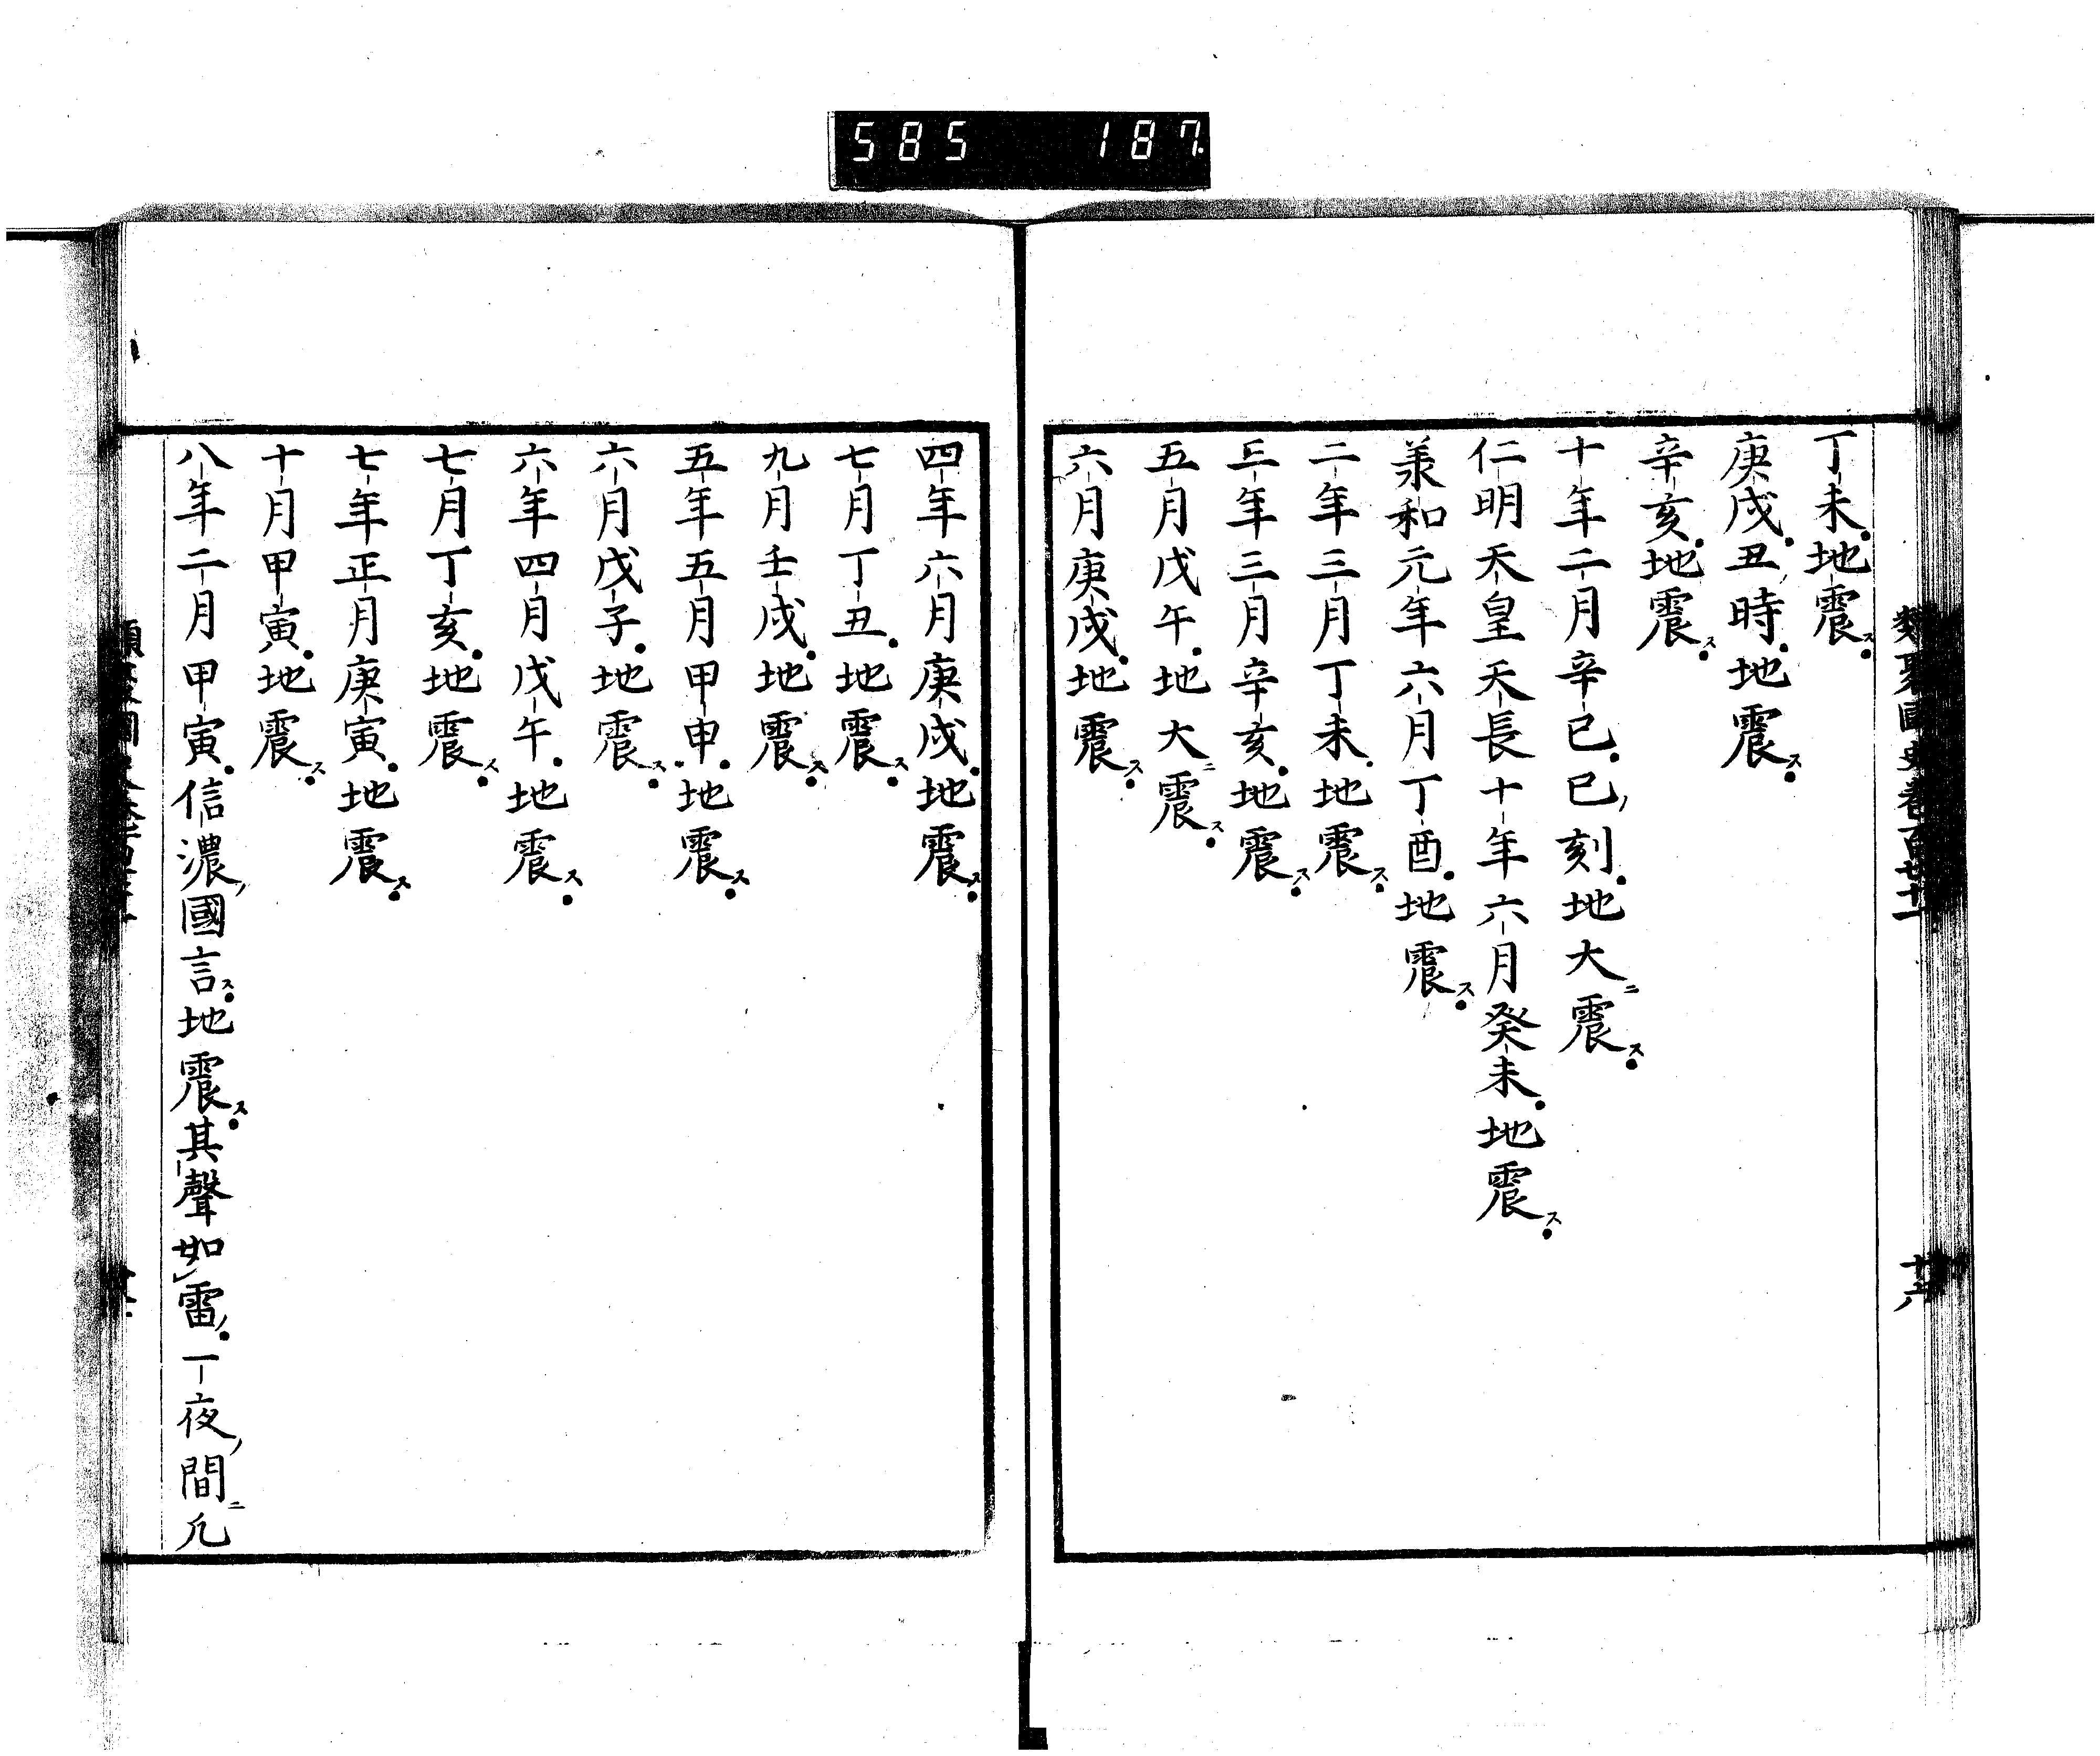 585 187
類聚國史卷百七十一
十六
丁未地震ス
庚戌丑時地震ス
辛亥地震ス
十年二月辛巳巳ノ刻地大ニ震ス
仁明天皇天長十年六月癸未地震ス
羕和元年六月丁酉地震ス
二年三月丁未地震ス
三年三月辛亥地震ス
五月戊午地大ニ震ス
六月庚戌地震ス
四年六月庚戌地震ス
七月丁丑地震ス
九月壬戌地震ス
五年五月甲申地震ス
六月戊子地震ス
六年四月戊午地震ス
七月丁亥地震ス
七年正月庚寅地震ス
十月甲寅地震ス
八年二月甲寅信濃ノ國言ス地震ス其聲如雷ノ一夜ノ間ニ凢